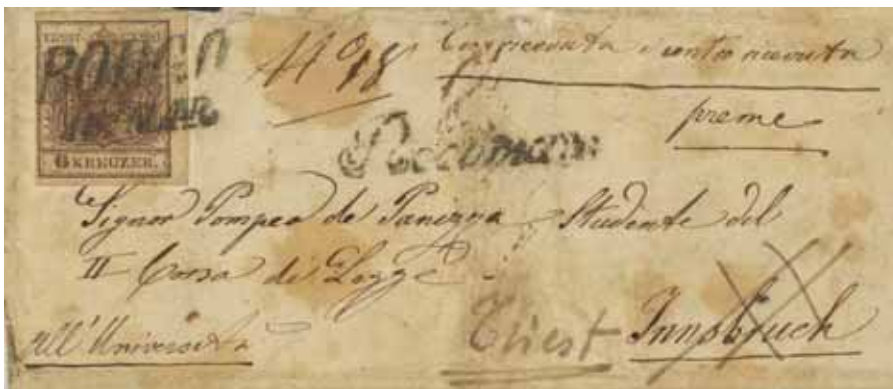 BORGO
MAR.
6 KREUZER.
N° 18
contro ricevuta
preme
Recomand
Signor Pompeo de Panizza Studente del
II Corso di Legge
all'Università
Triest Innsbruck